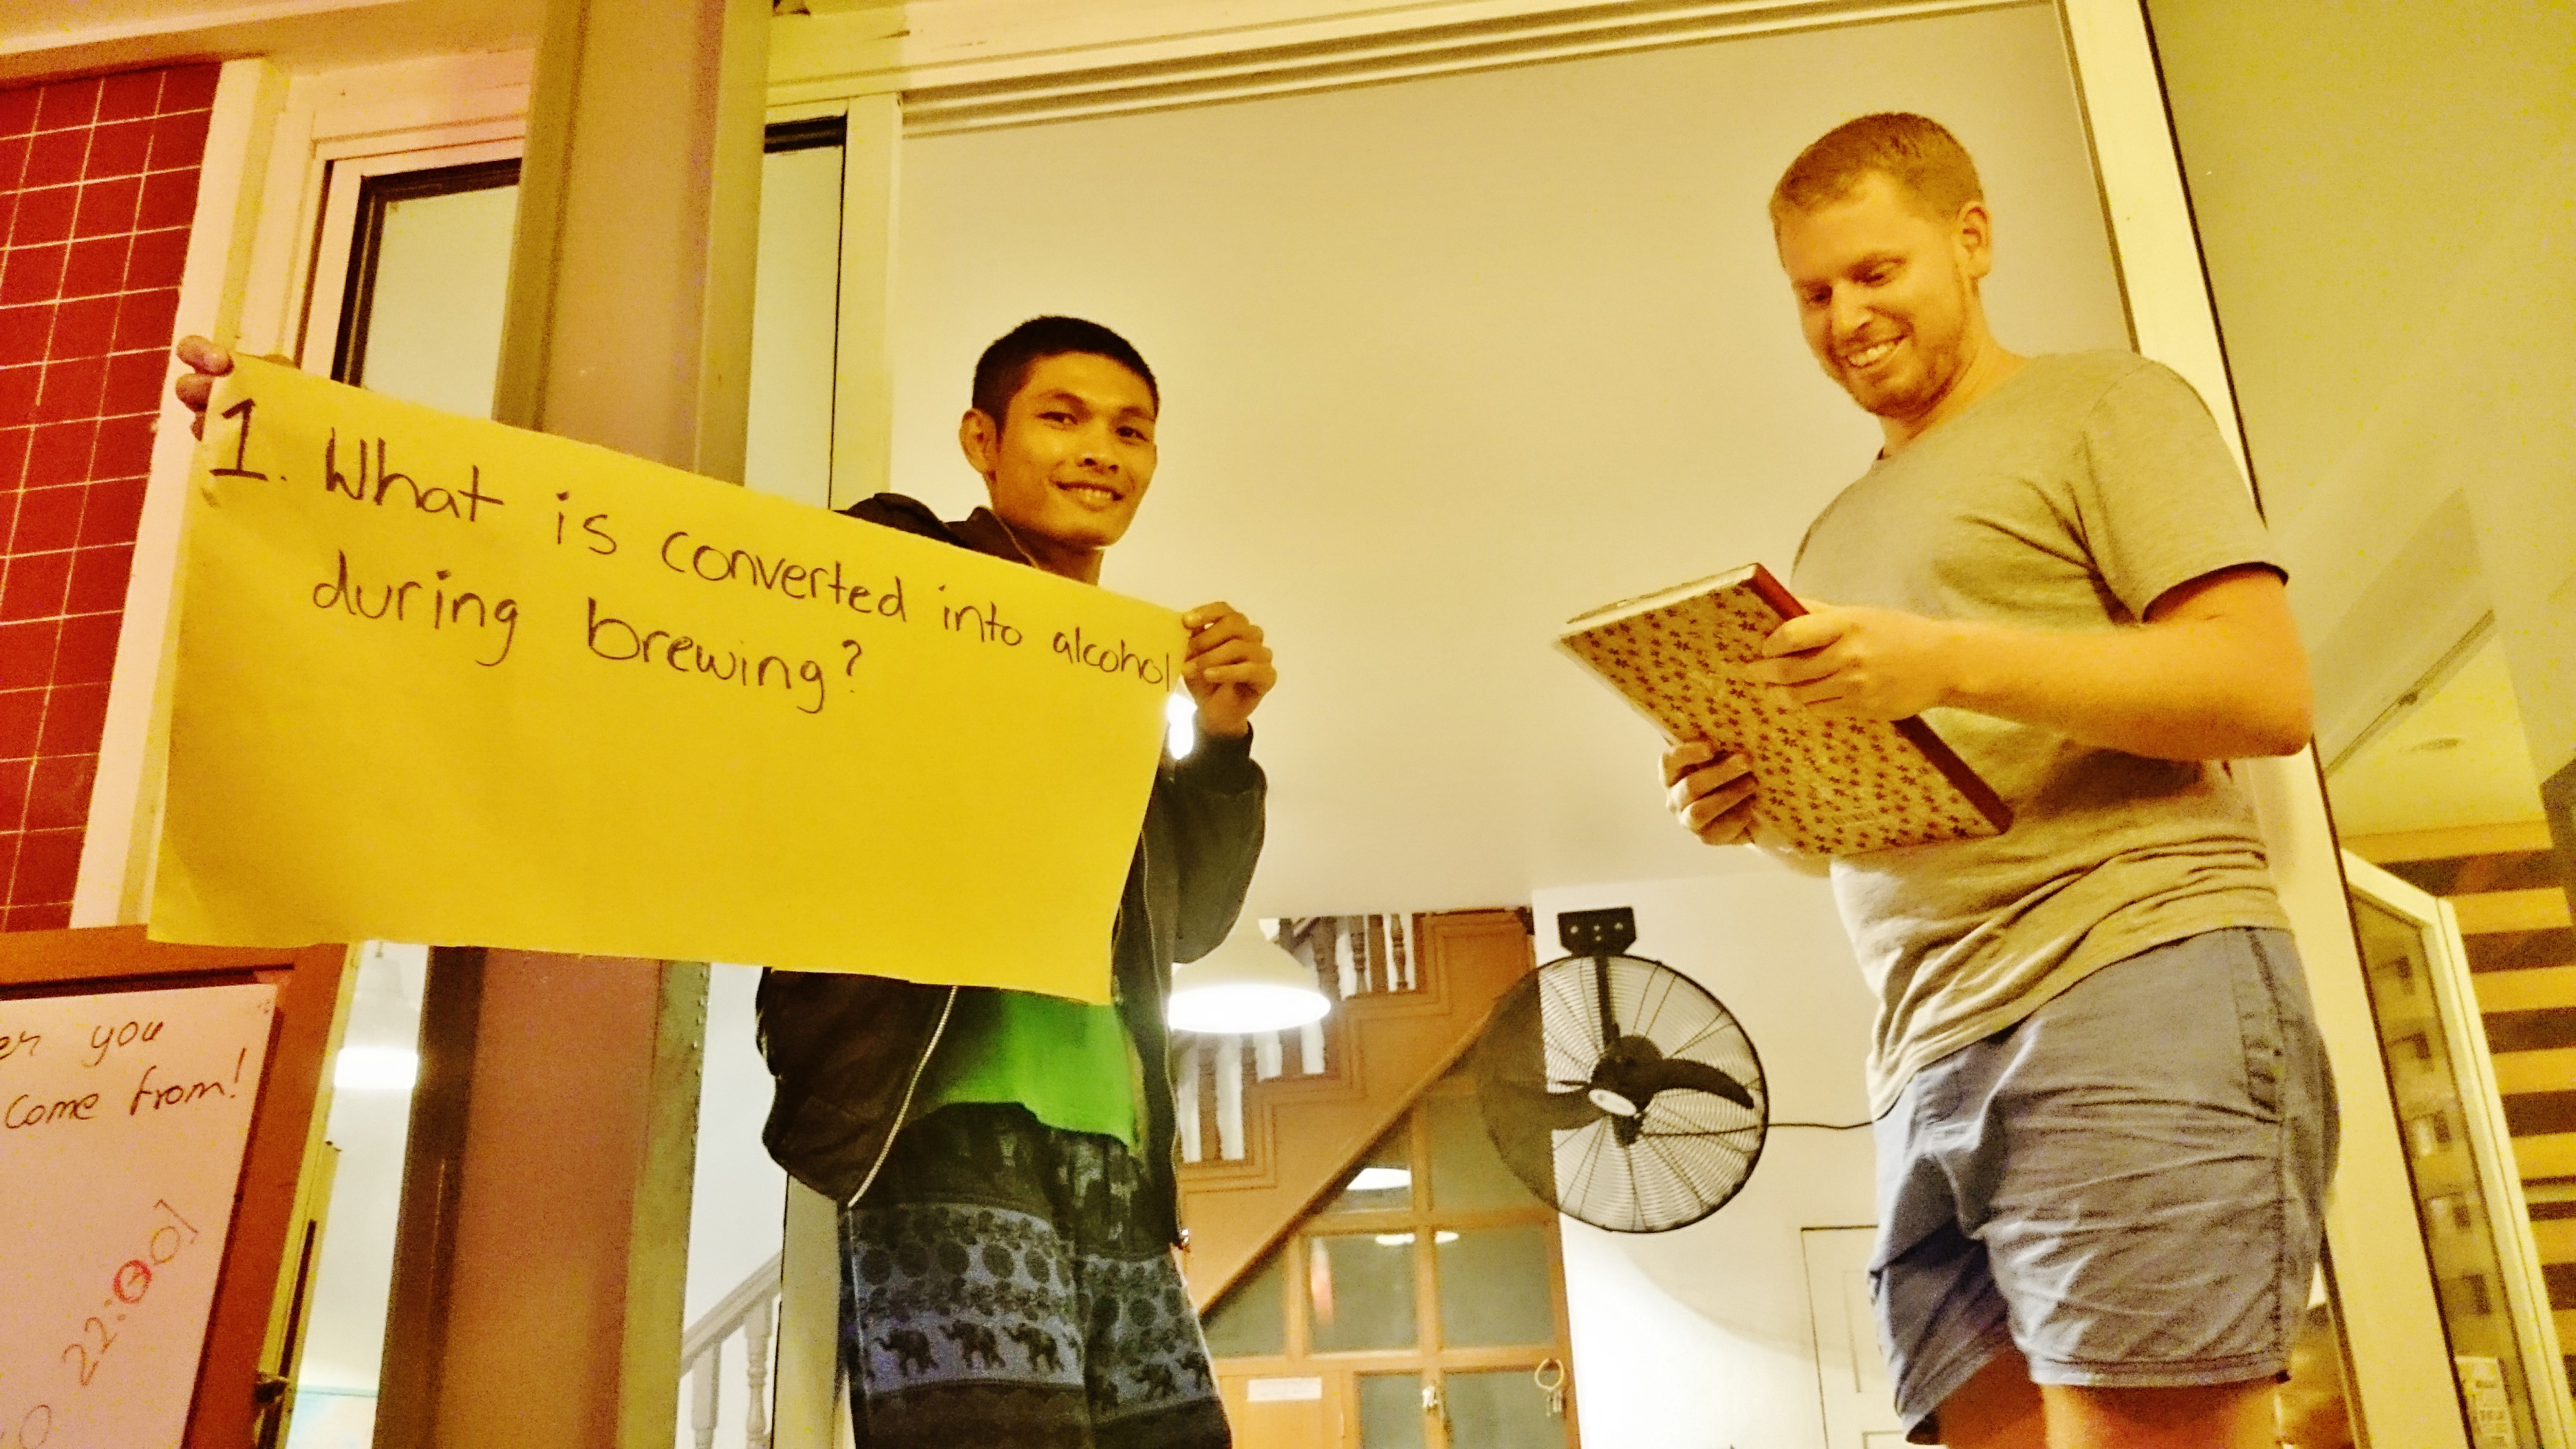 1. What is converted into alcohol
during brewing?
you
come from!
22:00